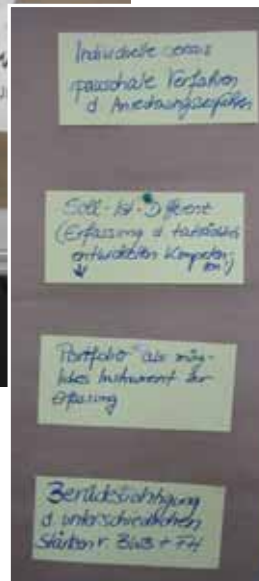 Individuelle versus
pauschale Verfahren
d Anrechnungsverfahren
Soll-Ist-Differenz
(Erfassung d tatsächlich
entwickelten Kompeten-
zen)
Portfolio als mög-
liches Instrument der
Erfassung
Berücksichtigung
d. unterschiedlichen
Stärken v. BWB + FH